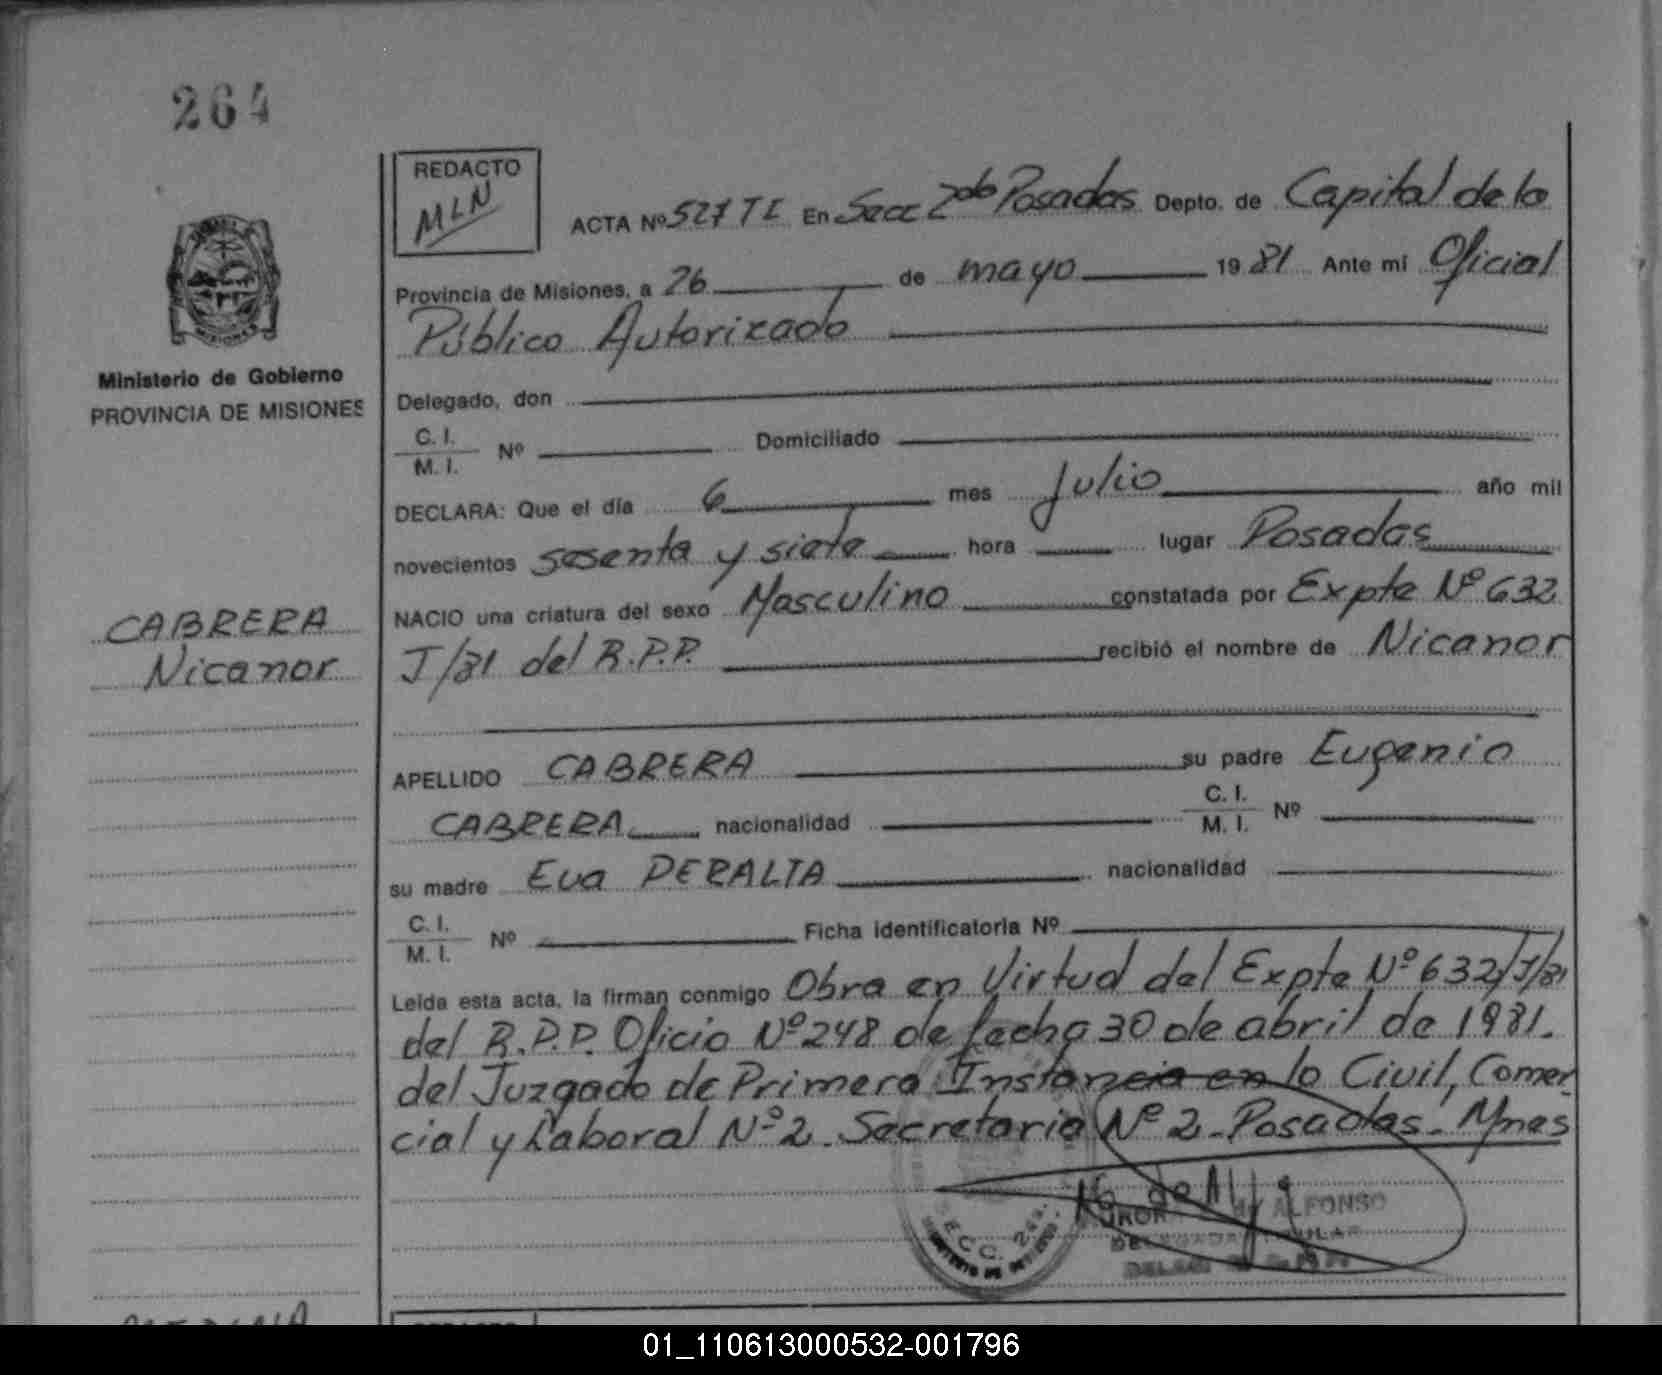 264
REDACTO
MLN
ACTA Nº 527 TI En Secc 2da Posadas Depto. de Capital de la
Provincia de Misiones, a 26 de mayo 1981 Ante mi Oficial
Público Autorizado
Ministerio de Gobierno
PROVINCIA DE MISIONES
Delegado, don
C. I.
M. I. Nº Domiciliado
DECLARA: Que el día 6 mes Julio año mil
novecientos sesenta y siete hora lugar Posadas
NACIO una criatura del sexo Masculino constatada por Expte Nº 632
J/81 del R.P.P. recibió el nombre de Nicanor
CABRERA
Nicanor
APELLIDO CABRERA su padre Eugenio
CABRERA nacionalidad C. I.
M. I. Nº
su madre Eva PERALTA nacionalidad
C. I.
M. I. Nº Ficha identificatoria Nº
Leída esta acta, la firman conmigo Obra en Virtud del Expte Nº 632/J/81
del R.P.P. Oficio Nº 248 de fecha 30 de abril de 1981.
del Juzgado de Primera Instancia en lo Civil, Comer
cial y Laboral Nº 2. Secretaria Nº 2 - Posadas - Mnes
ALFONSO
01_110613000532-001796